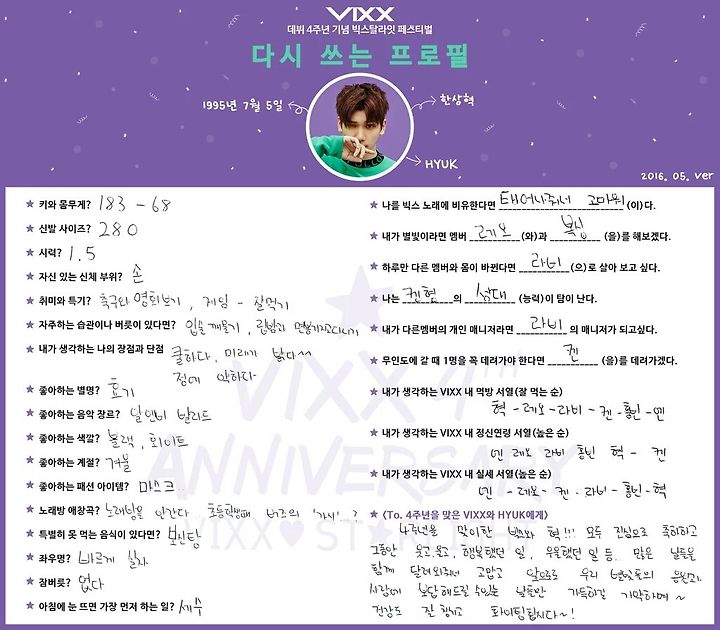 VIXX
데뷔 4주년 기념 빅스탈라잇 페스티벌
다시 쓰는 프로필
1995년 7월 5일
한상혁
HYUK
2016. 05. ver
VIXX 4TH
ANNIVERSARY
VIXX♥ST★RLIGHT
★ 키와 몸무게? 183 - 68
★ 신발 사이즈? 280
★ 시력? 1.5
★ 자신 있는 신체 부위? 손
★ 취미와 특기? 축구와 영화보기, 게임 - 잘먹기
★ 자주하는 습관이나 버릇이 있다면? 입술 깨물기, 립밤과
★ 내가 생각하는 나의 장점과 단점 쿨하다, 미래가 밝다~
정에 약하다-
★ 좋아하는 별명? 효기
★ 좋아하는 음악 장르? 알앤비 발라드
★ 좋아하는 색깔? 블랙, 화이트
★ 좋아하는 계절? 겨울
★ 좋아하는 패션 아이템? 마스크..
★ 노래방 애창곡? 노래방을 안간다.. 버즈의 '가시'?
★ 특별히 못 먹는 음식이 있다면? 보신탕
★ 좌우명? 바르게 살자
★ 잠버릇? 없다
★ 아침에 눈 뜨면 가장 먼저 하는 일? 세수
★ 나를 빅스 노래에 비유한다면 태어나줘서 고마워 (이)다.
★ 내가 별빛이라면 멤버 레오 (와)과 복싱 (을)를 해보겠다.
★ 하루만 다른 멤버와 몸이 바뀐다면 라비 (으)로 살아 보고 싶다.
★ 나는 켄형 의 성대 (능력)이 탐이 난다.
★ 내가 다른멤버의 개인 매니저라면 라비 의 매니저가 되고싶다.
★ 무인도에 갈 때 1명을 꼭 데려가야 한다면 켄 (을)를 데려가겠다.
★ 내가 생각하는 VIXX 내 먹방 서열(잘 먹는 순)
혁 - 레오 - 라비 - 켄 - 홍빈 - 엔
★ 내가 생각하는 VIXX 내 정신연령 서열(높은 순)
엔 레오 라비 홍빈 혁 - 켄
★ 내가 생각하는 VIXX 내 실세 서열(높은 순)
엔 - 레오 - 켄 - 라비 - 홍빈 - 혁
★ <To. 4주년을 맞은 VIXX와 HYUK에게>
4주년을 맞이한 빅스와 혁!!! 모두 진심으로 축하하고
그동안 웃고, 울고, 행복했던 일, 우울했던 일 등. 많은 날들을
함께 달려와줘서 고맙고 앞으로 우리 별빛들의 응원과
사랑에 보답해드릴 수있는 날들만 가득하길 기약하며~
건강도 잘 챙기고 화이팅합시다~!